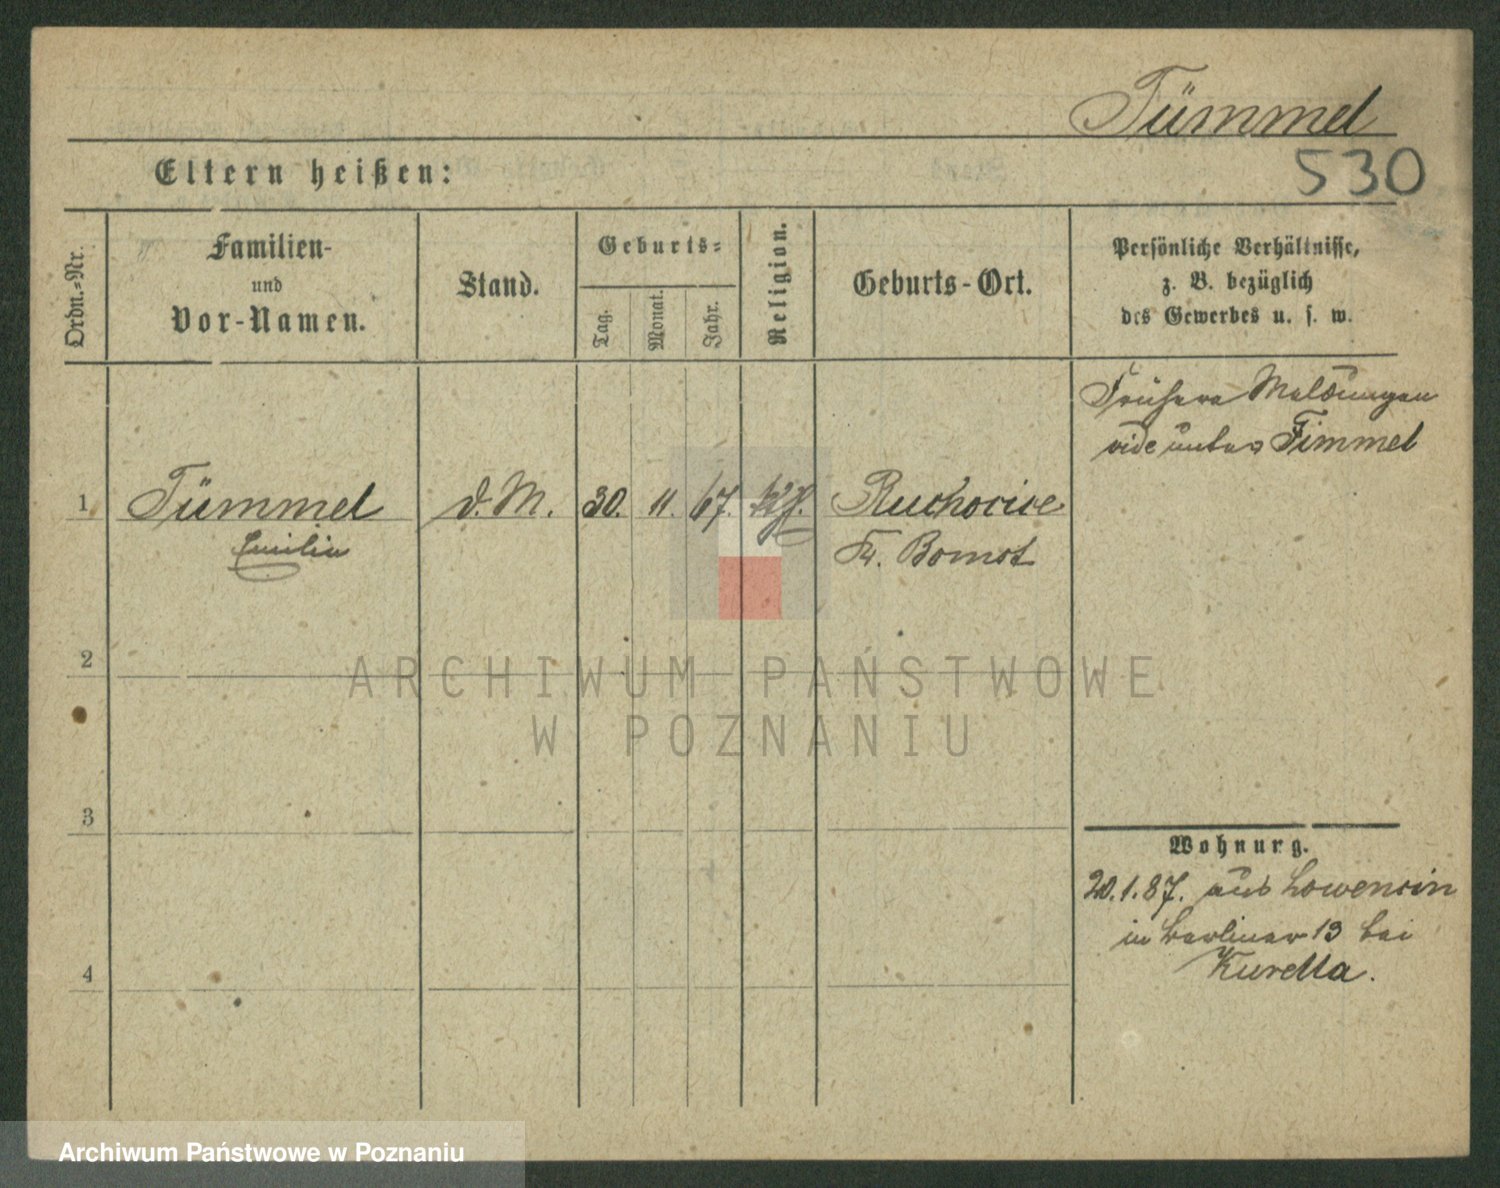 Tümmel
530
Eltern heißen:
Ordn.-Nr.
Familien-
und
Vor-Namen.
Stand.
Geburts-
Tag.
Monat.
Jahr.
Religion.
Geburts-Ort.
Persönliche Verhältnisse,
z. B. bezüglich
des Gewerbes u. s. w.
Frühere Meldungen
vide unter Fimmel
1 Tümmel d. M. 30. 11. 67. Ruchocice
Emilie Kr. Bomst
2
3
4
Wohnung.
20.1.87. aus Lowencin
in Berliner 13 bei
Kuretta.
ARCHIWUM PAŃSTWOWE
W POZNANIU
Archiwum Państwowe w Poznaniu